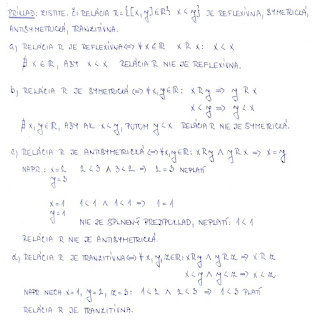 PRÍKLAD: ZISTITE, ČI RELÁCIA R = {[x,y]∈R²; x<y} JE REFLEXÍVNA, SYMETRICKÁ,
ANTISYMETRICKÁ, TRANZITÍVNA.
a) RELÁCIA R JE REFLEXÍVNA ⇔ ∀x∈R x R x: x<x
∄x∈R, ABY x<x RELÁCIA R NIE JE REFLEXÍVNA.
b) RELÁCIA R JE SYMETRICKÁ ⇔ ∀x,y∈R: x R y ⇒ y R x
x<y ⇒ y<x
∄x,y∈R, ABY AK x<y, POTOM y<x RELÁCIA R NIE JE SYMETRICKÁ.
c) RELÁCIA R JE ANTISYMETRICKÁ ⇔ ∀x,y∈R: x R y ∧ y R x ⇒ x=y
NAPR.: x=2 2<3 ∧ 3<2 ⇒ 2=3 NEPLATÍ
y=3
x=1 1<1 ∧ 1<1 ⇒ 1=1
y=1
NIE JE SPLNENÝ PREDPOKLAD, NEPLATÍ: 1<1
RELÁCIA R NIE JE ANTISYMETRICKÁ.
d) RELÁCIA R JE TRANZITÍVNA ⇔ ∀x,y,z∈R: x R y ∧ y R z ⇒ x R z
x<y ∧ y<z ⇒ x<z
NAPR NECH x=1, y=2, z=3: 1<2 ∧ 2<3 ⇒ 1<3 PLATÍ
RELÁCIA R JE TRANZITÍVNA.